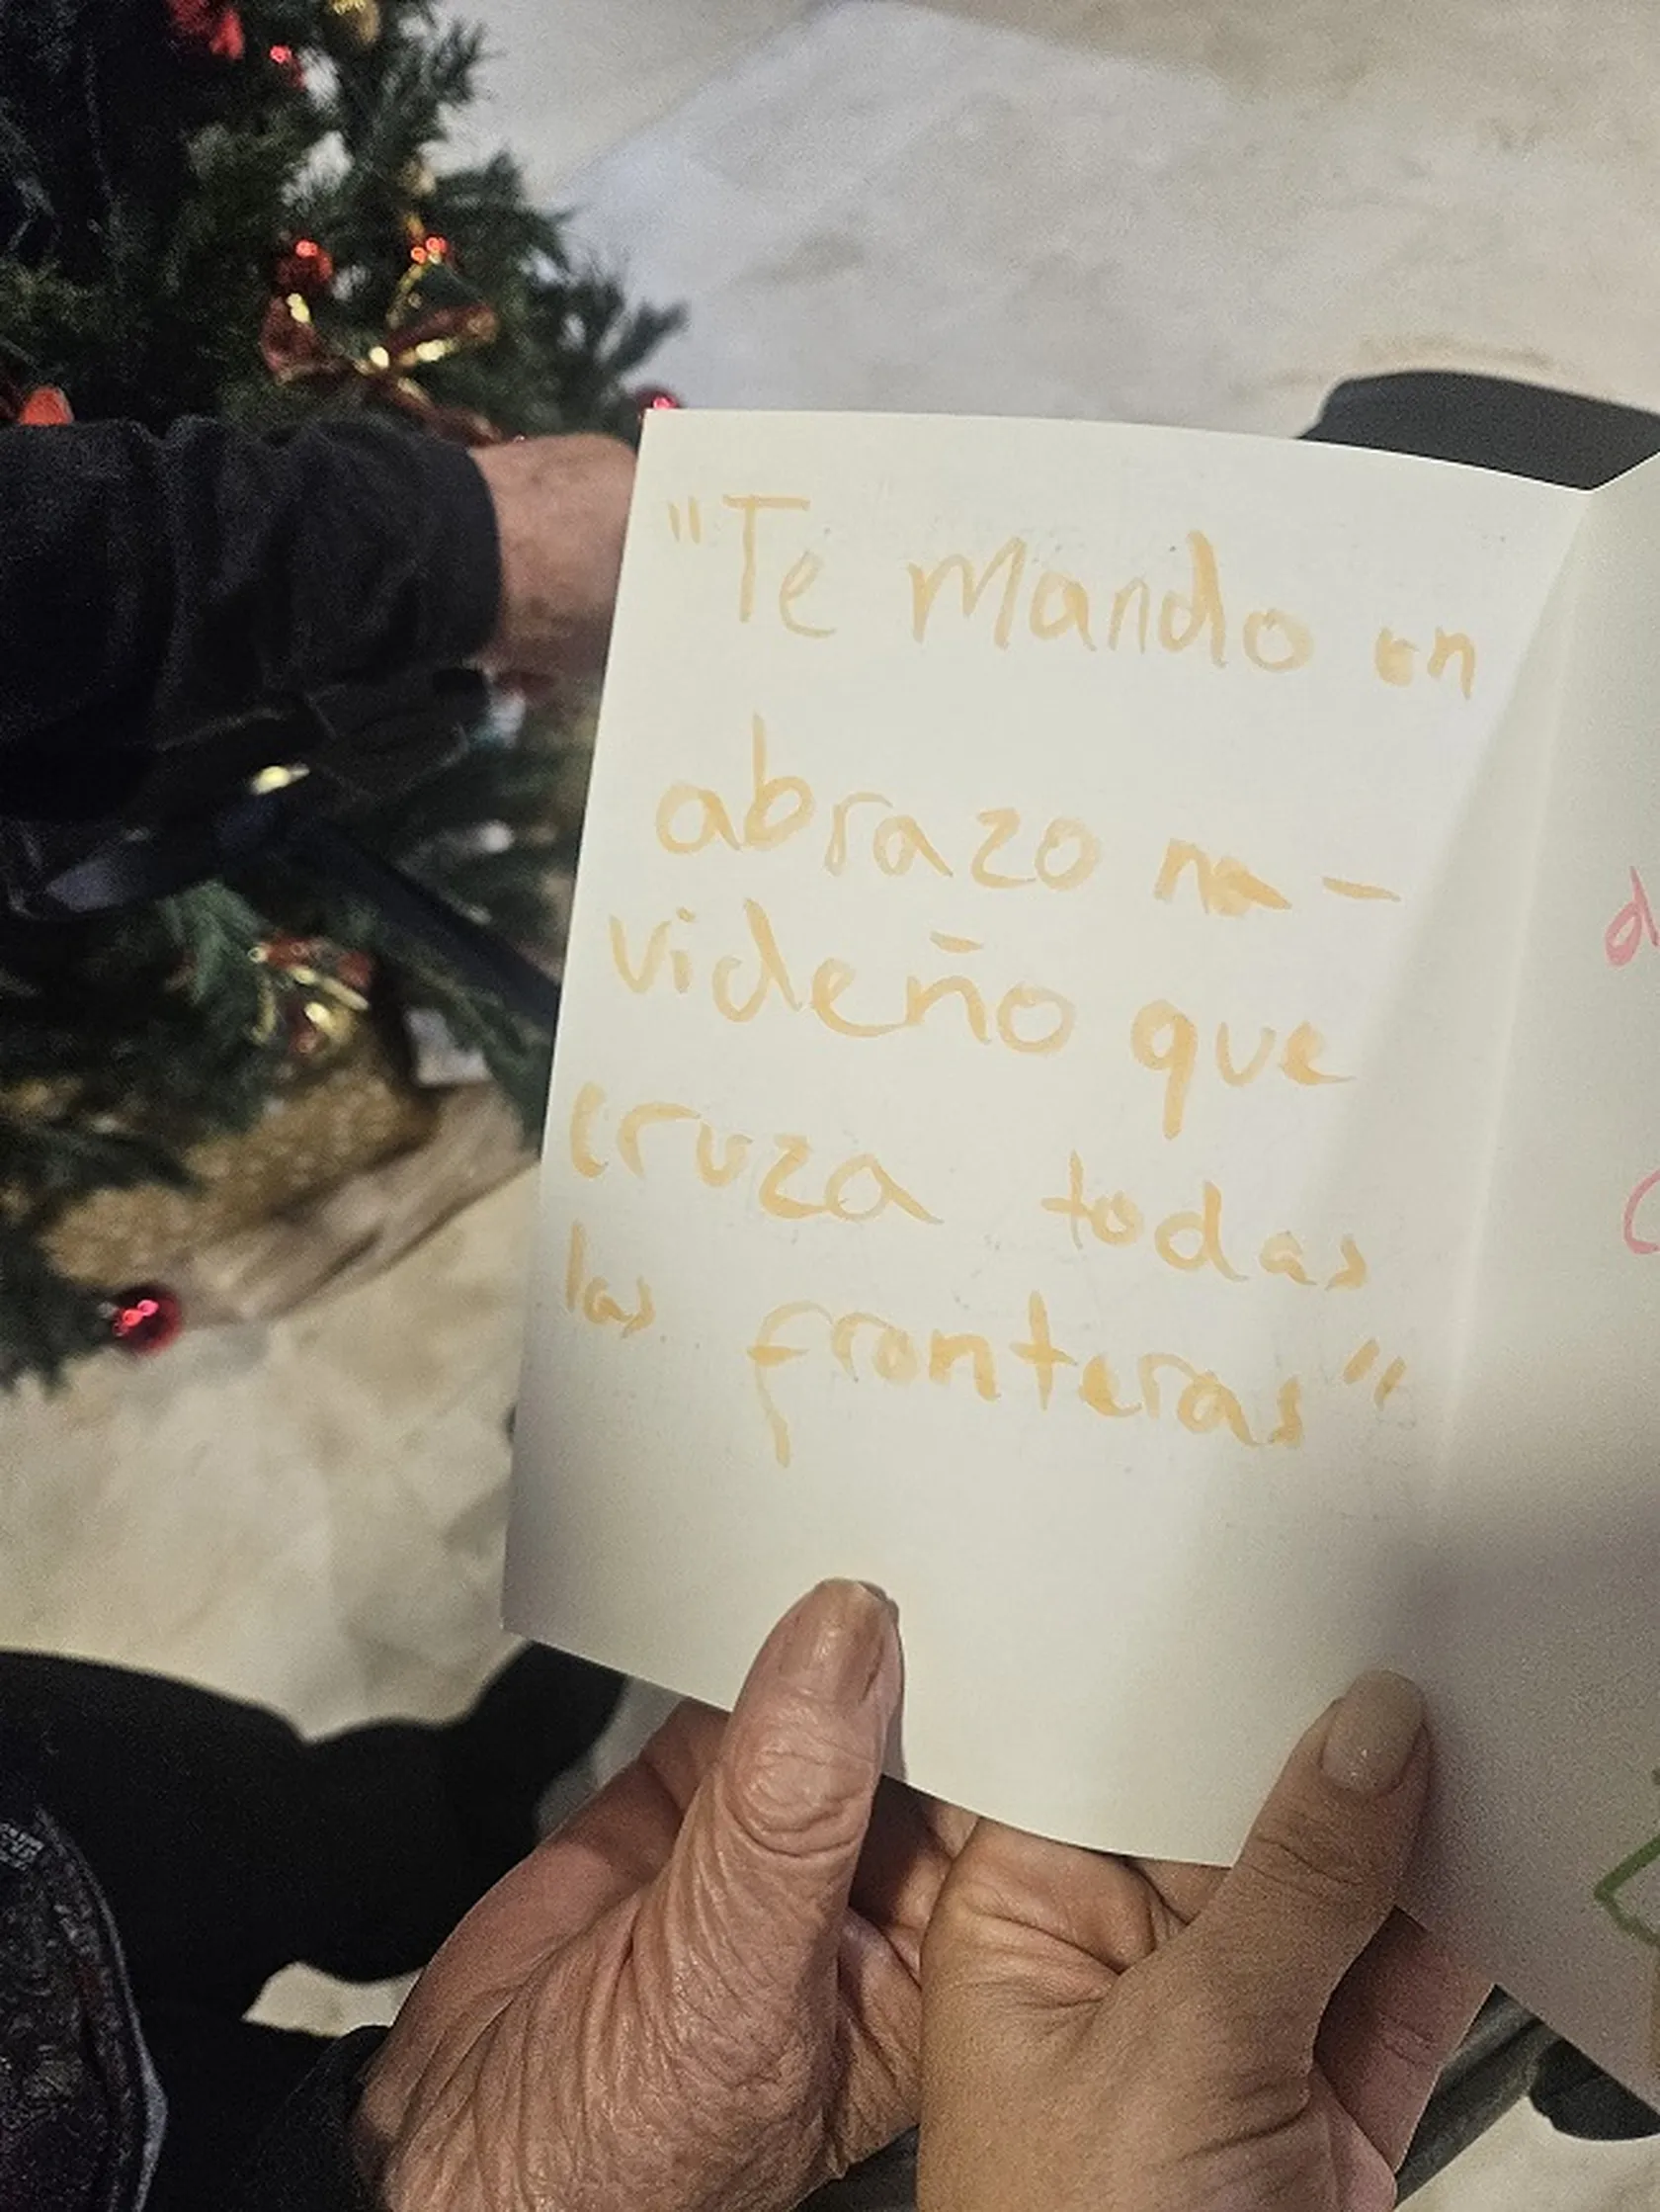 "Te Mando un
abrazo na-
videño que
cruza todas
las fronteras"